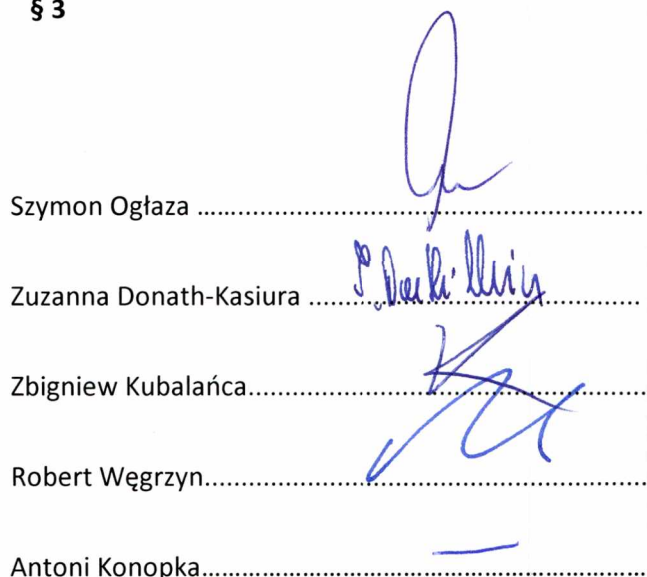 § 3
Szymon Ogłaza ........................................................................
Zuzanna Donath-Kasiura ........................................................
Zbigniew Kubalańca................................................................
Robert Węgrzyn......................................................................
Antoni Konopka......................................................................